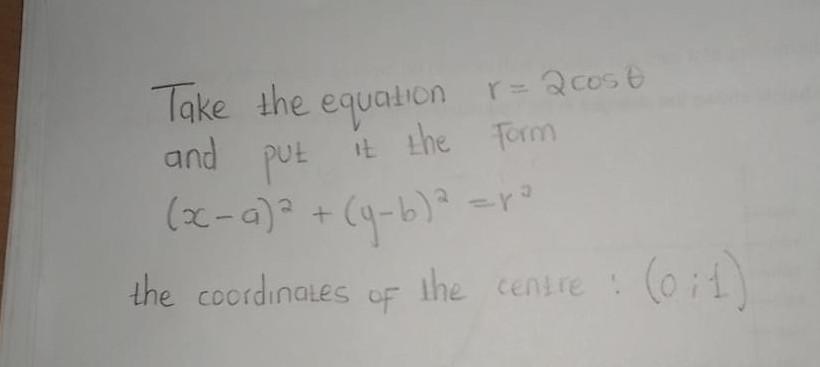 Take the equation r = 2cosθ
and put it the form
(x-a)² + (y-b)² = r²
the coordinates of the centre : (0;1)